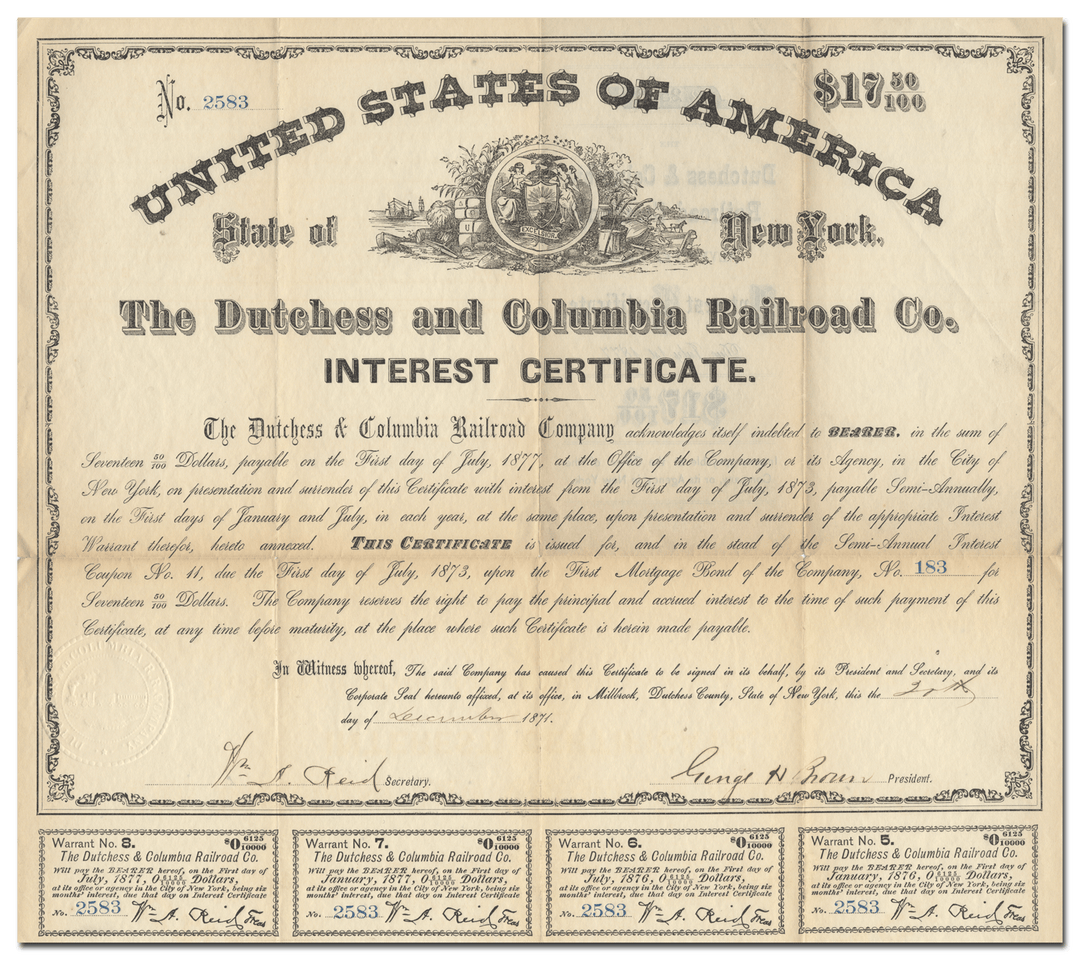 No. 2583
$17 50/100
UNITED STATES OF AMERICA
State of New York.
EXCELSIOR
The Dutchess and Columbia Railroad Co.
INTEREST CERTIFICATE.
The Dutchess & Columbia Railroad Company acknowledges itself indebted to BEARER. in the sum of
Seventeen 50/100 Dollars, payable on the First day of July, 1877, at the Office of the Company, or its Agency, in the City of
New York, on presentation and surrender of this Certificate with interest from the First day of July, 1873, payable Semi-Annually,
on the First days of January and July, in each year, at the same place, upon presentation and surrender of the appropriate Interest
Warrant therefor, hereto annexed. THIS CERTIFICATE is issued for, and in the stead of the Semi-Annual Interest
Coupon No. 11, due the First day of July, 1873, upon the First Mortgage Bond of the Company, No. 183 for
Seventeen 50/100 Dollars. The Company reserves the right to pay the principal and accrued interest to the time of such payment of this
Certificate, at any time before maturity, at the place where such Certificate is herein made payable.
In Witness whereof, The said Company has caused this Certificate to be signed in its behalf, by its President and Secretary, and its
Corporate Seal hereunto affixed, at its office, in Millbrook, Dutchess County, State of New York, this the 20th
day of December 1871.
Wm A. Reid Secretary.
George H Brown President.
Warrant No. 8. $0 6125/10000
The Dutchess & Columbia Railroad Co.
Will pay the BEARER hereof, on the First day of
July, 1877, 0 6125/10000 Dollars,
at its office or agency in the City of New York, being six
months' interest, due that day on Interest Certificate
No. 2583 Wm A. Reid Treas
Warrant No. 7. $0 6125/10000
The Dutchess & Columbia Railroad Co.
Will pay the BEARER hereof, on the First day of
January, 1877, 0 6125/10000 Dollars,
at its office or agency in the City of New York, being six
months' interest, due that day on Interest Certificate
No. 2583 Wm A. Reid Treas
Warrant No. 6. $0 6125/10000
The Dutchess & Columbia Railroad Co.
Will pay the BEARER hereof, on the First day of
July, 1876, 0 6125/10000 Dollars,
at its office or agency in the City of New York, being six
months' interest, due that day on Interest Certificate
No. 2583 Wm A. Reid Treas
Warrant No. 5. $0 6125/10000
The Dutchess & Columbia Railroad Co.
Will pay the BEARER hereof, on the First day of
January, 1876, 0 6125/10000 Dollars,
at its office or agency in the City of New York, being six
months' interest, due that day on Interest Certificate
No. 2583 Wm A. Reid Treas